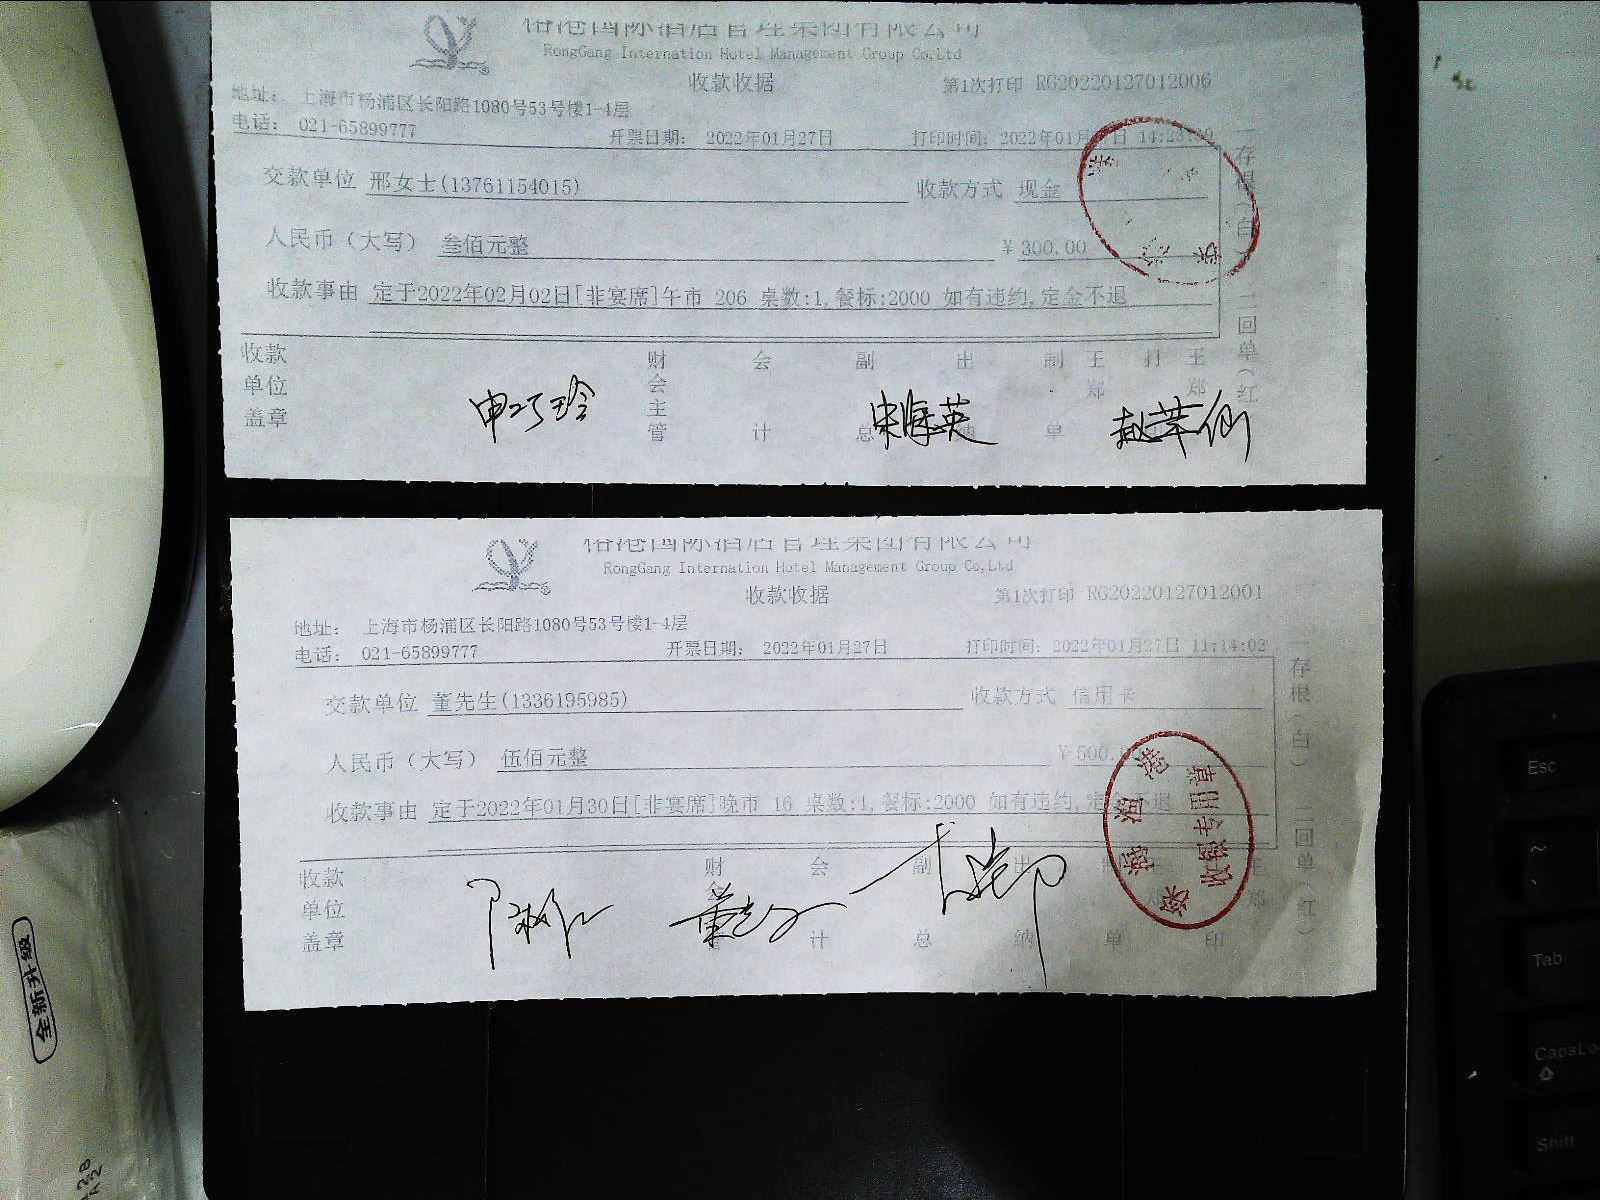 榕港国际酒店管理集团有限公司
RongGang Internation Hotel Management Group Co,Ltd
收款收据
第1次打印 RG20220127012006
地址: 上海市杨浦区长阳路1080号53号楼1-4层
电话: 021-65899777
开票日期: 2022年01月27日
打印时间: 2022年01月 日 14:2
交款单位 邢女士(13761154015)
收款方式 现金
人民币（大写） 叁佰元整
¥300.00
收款事由 定于2022年02月02日[非宴席]午市 206 桌数:1,餐标:2000 如有违约,定金不退
一存根(白) 二回单(红
收款单位盖章
财会主管
会计
副总
出纳
制单
王郑
打
王郑
申巧玲
宋海英
赵苹仙
榕港国际酒店管理集团有限公司
RongGang Internation Hotel Management Group Co,Ltd
收款收据
第1次打印 RG20220127012001
地址: 上海市杨浦区长阳路1080号53号楼1-4层
电话: 021-65899777
开票日期: 2022年01月27日
打印时间: 2022年01月27日 11:14:02
交款单位 董先生(1336195985)
收款方式 信用卡
人民币（大写） 伍佰元整
¥500.
收款事由 定于2022年01月30日[非宴席]晚市 16 桌数:1,餐标:2000 如有违约,定 不退
一存根(白) 二回单(红)
收款单位盖章
财会 管
会计
副总
出纳
制单
印
郑
收银专用章
Esc
~
Tab
CapsLo
Shift
全新升级